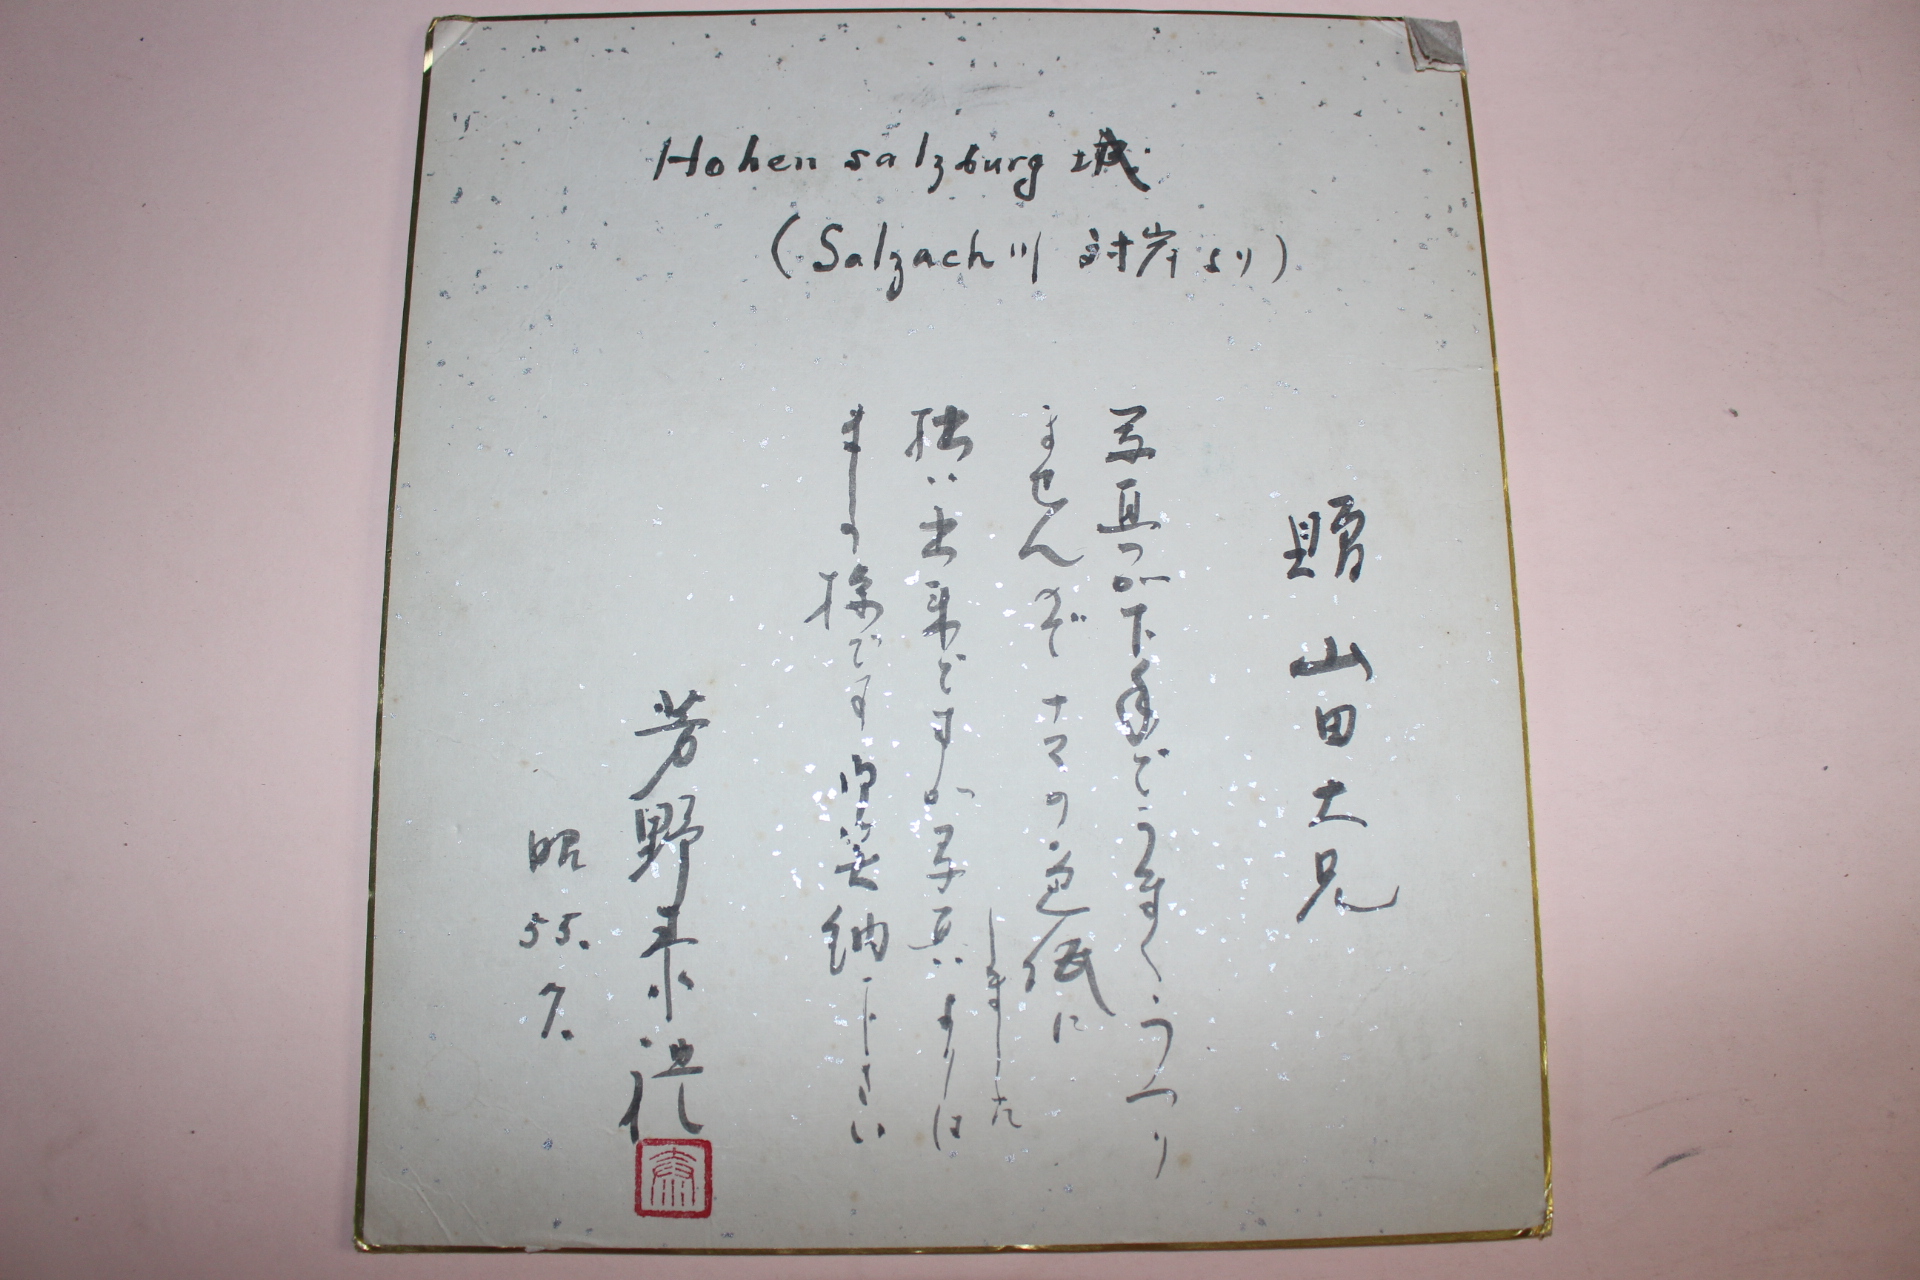 Hohensalzburg城
(Salzach川対岸より)
贈 山田大兄
写真が下手でうまくうつり
ませんので ナマの色紙に
しました
拙い出来ですが写真よりは
ましの様です 御笑納下さい
芳野泰
昭55.7.
泰